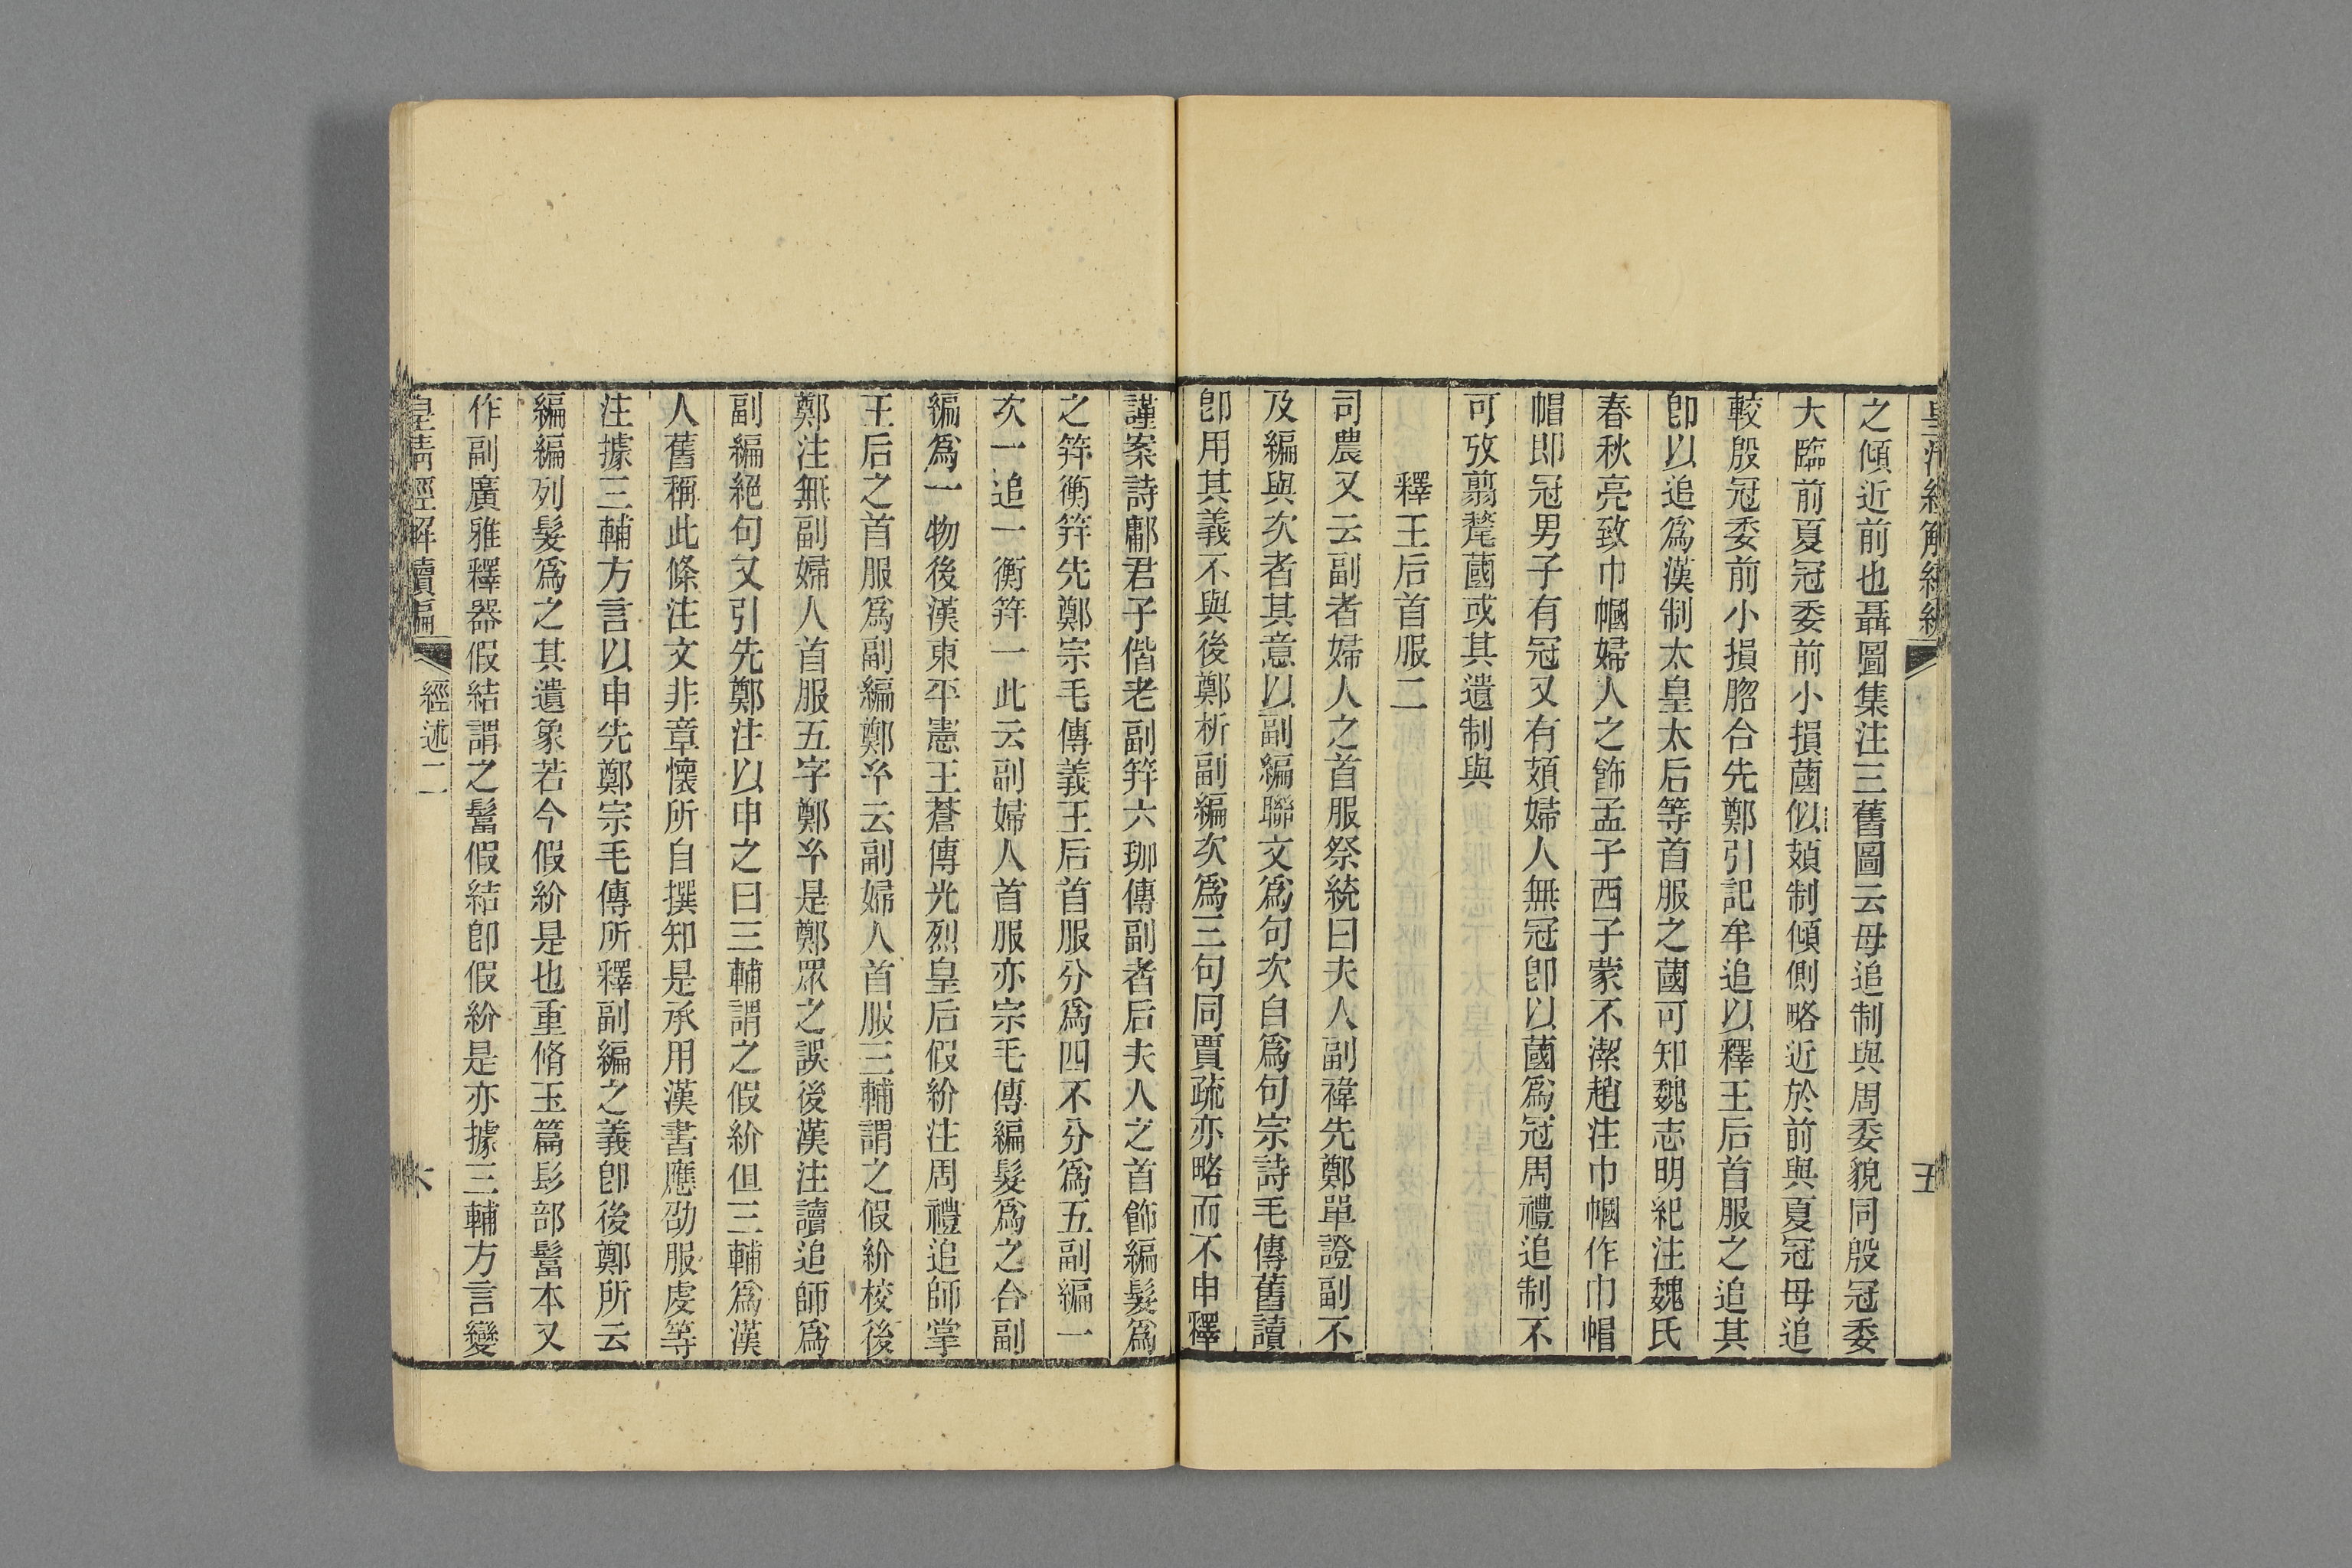 之傾近前也聶圖集注三舊圖云毋追制與周委貌同殷冠委
大臨前夏冠委前小損蔮似頍制傾側略近於前與夏冠毋追
較殷冠委前小損脗合先鄭引記牟追以釋王后首服之追其
卽以追爲漢制太皇太后等首服之蔮可知魏志明紀注魏氏
春秋亮致巾幗婦人之飾孟子西子蒙不潔趙注巾幗作巾帽
帽即冠男子有冠又有頍婦人無冠卽以蔮爲冠周禮追制不
可攷翦氂蔮或其遺制與
釋王后首服二
司農又云副者婦人之首服祭統曰夫人副褘先鄭單證副不
及編與次者其意以副編聯文爲句次自爲句宗詩毛傳舊讀
卽用其義不與後鄭析副編次爲三句同賈疏亦略而不申釋
謹案詩鄘君子偕老副筓六珈傳副者后夫人之首飾編髮爲
之筓衡筓先鄭宗毛傳義王后首服分爲四不分爲五副編一
次一追一衡筓一此云副婦人首服亦宗毛傳編髮爲之合副
編爲一物後漢東平憲王蒼傳光烈皇后假紒注周禮追師掌
王后之首服爲副編鄭𠔃云副婦人首服三輔謂之假紒校後
鄭注無副婦人首服五字鄭𠔃是鄭眾之誤後漢注讀追師爲
副編絕句又引先鄭注以申之曰三輔謂之假紒但三輔爲漢
人舊稱此條注文非章懷所自撰知是承用漢書應劭服虔等
注據三輔方言以申先鄭宗毛傳所釋副編之義卽後鄭所云
編編列髮爲之其遺象若今假紒是也重脩玉篇髟部鬙本又
作副廣雅釋器假結謂之鬙假結卽假紒是亦據三輔方言變
皇清經解續編
經述二
六
皇清經解續編
五